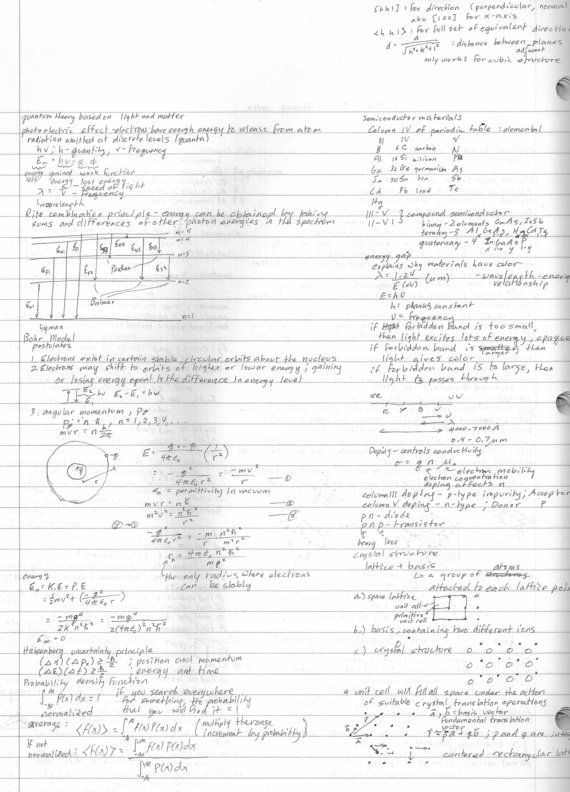 [hkl] = for direction (perpendicular, normal
aka [100] for x-axis
<hkl> : for full set of equivalent direction
d = a / √(h²+k²+l²) = distance between planes
adjacent
only works for cubic structure
quantum theory based on light and matter
photoelectric effect - electrons have enough energy to release from atom
radiation emitted at discrete levels (quanta)
hν ; h - quantity, ν - frequency
Em = hν - qΦ
energy gained work function
energy
λ = c/ν - speed of light
- frequency
wavelength
Ritz combination principle - energy can be obtained by taking
sums and differences of other photon energies in the spectrum
n=4
n=3
Paschen
n=2
Balmer
n=1
Lyman
Bohr Model
postulates
1. Electrons exist in certain stable, circular orbits about the nucleus
2. Electrons may shift to orbits of higher or lower energy; gaining
or losing energy equal to the difference in energy level
E₂ hν E₂-E₁=hν
E₁
3. angular momentum, Pθ
Pθ = nħ, n=1,2,3,4,...
mvr = n h/2π
+q
-q
r
ε₀ = permittivity in vacuum
mvr = nħ
m²v² = n²ħ²/r²
the only radius where electrons
can be stably
energy
En = K.E + P.E
= ½mv² + (-q²/4πε₀r)
E∞ = 0
Heisenberg uncertainty principle
(Δx)(ΔPx) ≥ ħ/2 ; position and momentum
(ΔE)(Δt) ≥ ħ/2 ; energy and time
Probability density function
∫ P(x)dx = 1 if you search everywhere
for something, the probability
that you will find it = 1
normalized
average: <f(x)> = ∫ f(x)P(x)dx (multiply the range
increment by probability)
If not
normalized: <f(x)> = ∫ f(x)P(x)dx
∫ P(x)dx
Semiconductor materials
Column IV of periodic table : elemental
III IV V
B 6 C carbon N
Al 14 Si silicon P
Ga 32 Ge germanium As
In 50 Sn tin Sb
Cd Pb lead Te
Hg
III-V } compound semiconductor
II-VI } binary - 2 elements GaAs, InSb
ternary - 3 AlGaAs, HgCdTe
quaternary - 4 InGaAsP
x 1-x y 1-y
energy gap
explains why materials have color
λ = 1.24 / E(eV) (μm) - wavelength - energy
relationship
E = hν
h = planks constant
ν = frequency
if forbidden band is too small,
then light excites lots of energy, opaque
if forbidden band is larger, then
light gives color
if forbidden band is to large, then
light passes through
IR UV
R Y B V
ν
λ
4000-7000 Å
0.4 - 0.7 μm
Doping - controls conductivity
σ = q n μn
electron mobility
electron concentration
doping affects n
column III doping - p-type impurity; Acceptor
column V doping - n-type ; Donor P
pn - diode
pnp - transistor
heavy less
crystal structure
lattice + basis
↳ a group of atoms
attached to each lattice poin
a.) space lattice
unit cell
primitive
unit cell
b.) basis, containing two different ions
c.) crystal structure
a unit cell will fill all space under the action
of suitable crystal translation operations
a, b = basis vector
fundamental translation
vector
r = pa + qb ; p and q are inte
centered rectangular lat